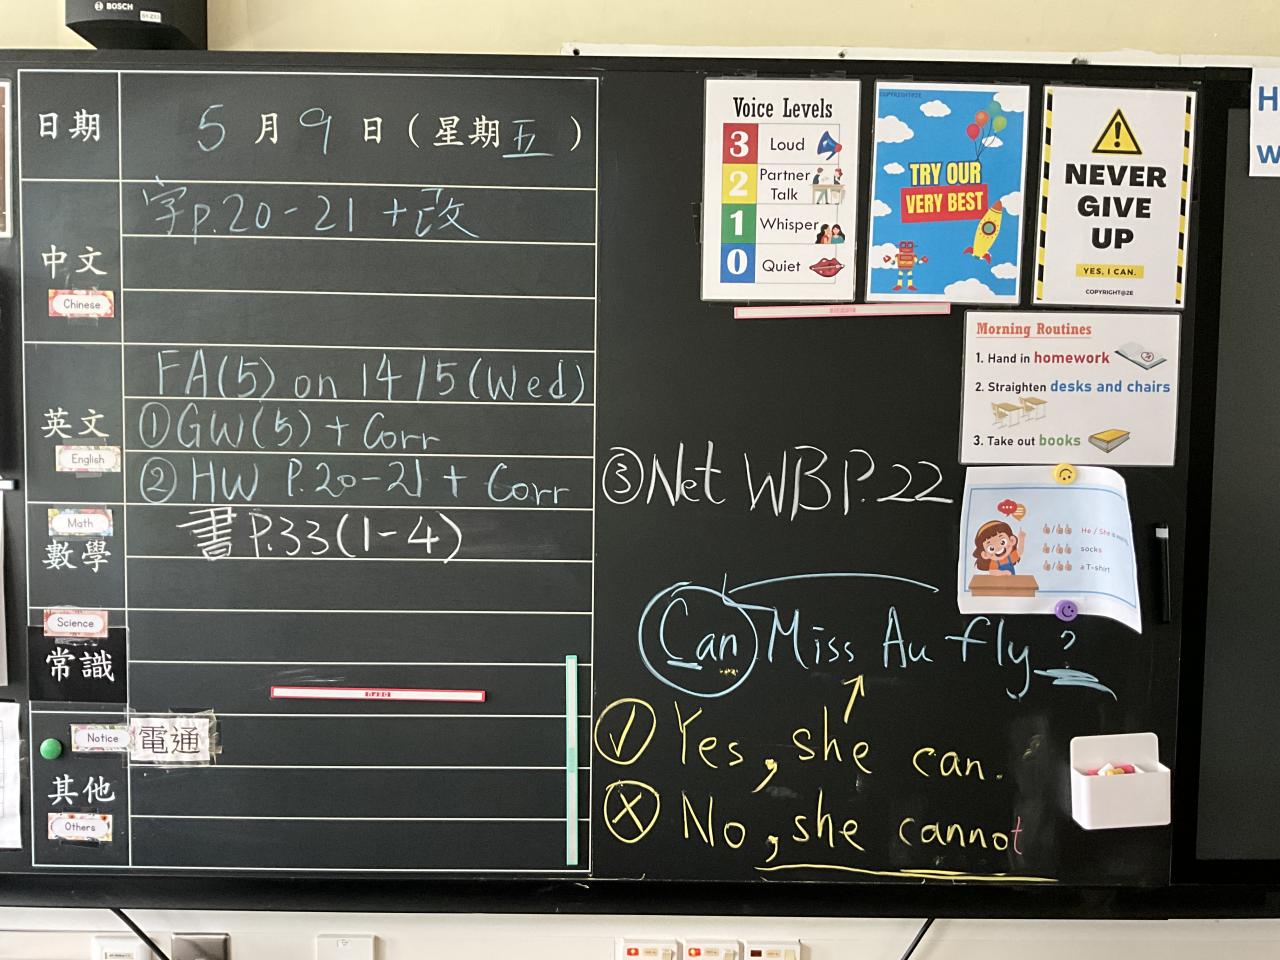 BOSCH
日期 5月9日(星期五)
中文
Chinese
字p.20-21+改
英文
English
FA(5) on 14/5(Wed)
①GW(5)+Corr
②HW P.20-21 + Corr
③Net WB P.22
Math
數學
書P.33(1-4)
Science
常識
Notice
電通
其他
Others
Voice Levels
3 Loud
2 Partner Talk
1 Whisper
0 Quiet
COPYRIGHT@2E
TRY OUR
VERY BEST
NEVER
GIVE
UP
YES, I CAN.
COPYRIGHT@2E
Morning Routines
1. Hand in homework
2. Straighten desks and chairs
3. Take out books
He / She is
socks
a T-shirt
Can Miss Au fly?
✓ Yes, she can.
✗ No, she cannot
H
w